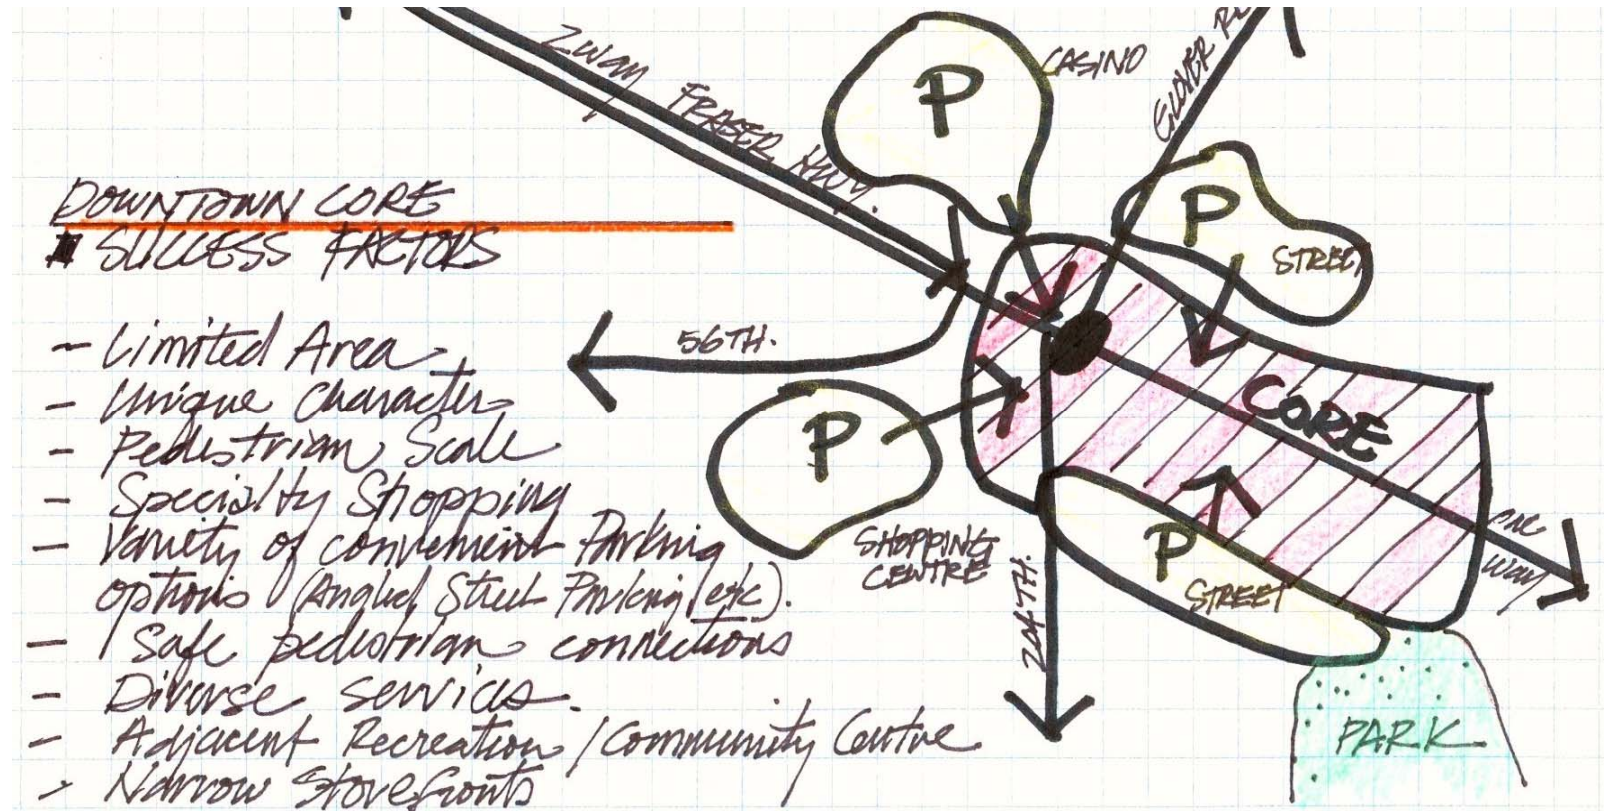 DOWNTOWN CORE
SUCCESS FACTORS
- Limited Area
- Unique Character
- Pedestrian Scale
- Specialty Shopping
- Variety of convenient Parking
options (Angled Street Parking etc).
- Safe pedestrian connections
- Diverse services.
- Adjacent Recreation / Community Centre
- Narrow Storefronts
2way FRASER HWY.
P
CASINO
GLOVER
P
STREET
56TH.
P
SHOPPING
CENTRE
CORE
P
STREET
204TH.
ONE
WAY
PARK